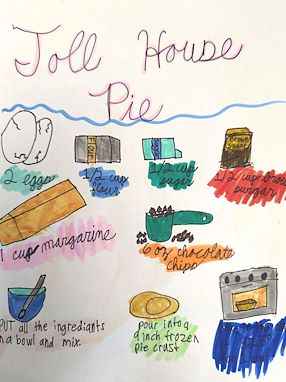 Toll House
Pie
2 eggs
FLOUR
1/2 cup
flour
1/2 cup
sugar
Brown
sugar
1/2 cup brown
surgar
1 cup margarine
6 oz chocolate
chips
PUT all the ingrediants
in a bowl and mix.
pour into a
9 inch frozen
pie crust